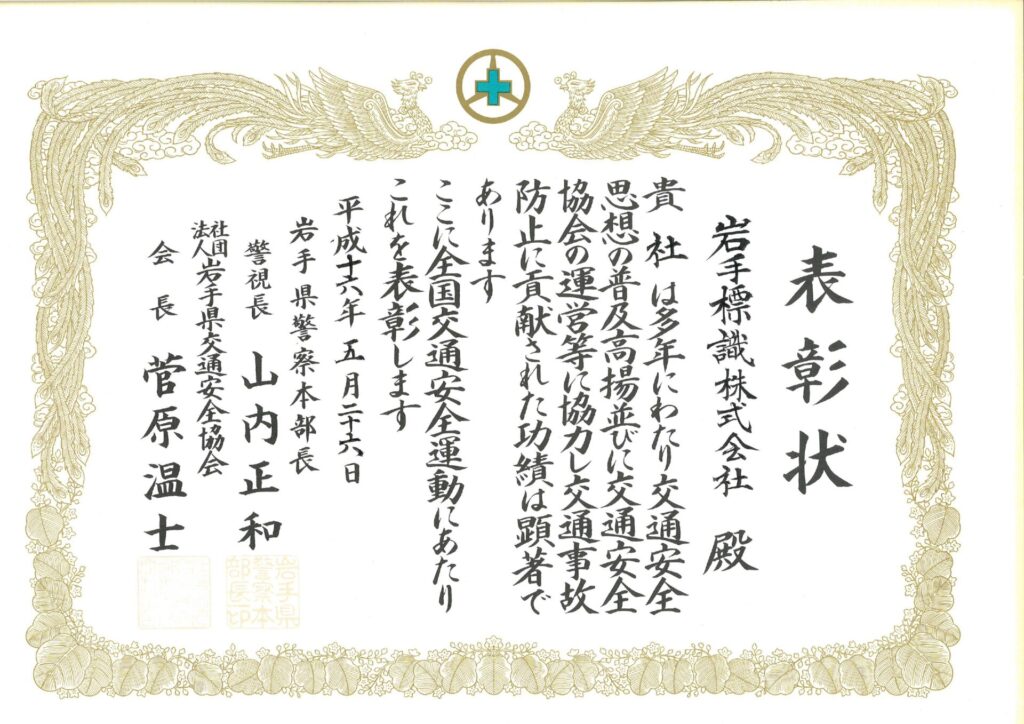 表彰状
岩手標識株式会社 殿
貴社は多年にわたり交通安全
思想の普及高揚並びに交通安全
協会の運営等に協力し交通事故
防止に貢献された功績は顕著で
あります
ここに全国交通安全運動にあたり
これを表彰します
平成十六年五月二十六日
岩手県警察本部長
警視長 山内正和
岩手県
警察本
部長印
社団法人岩手県交通安全協会
会長 菅原温士